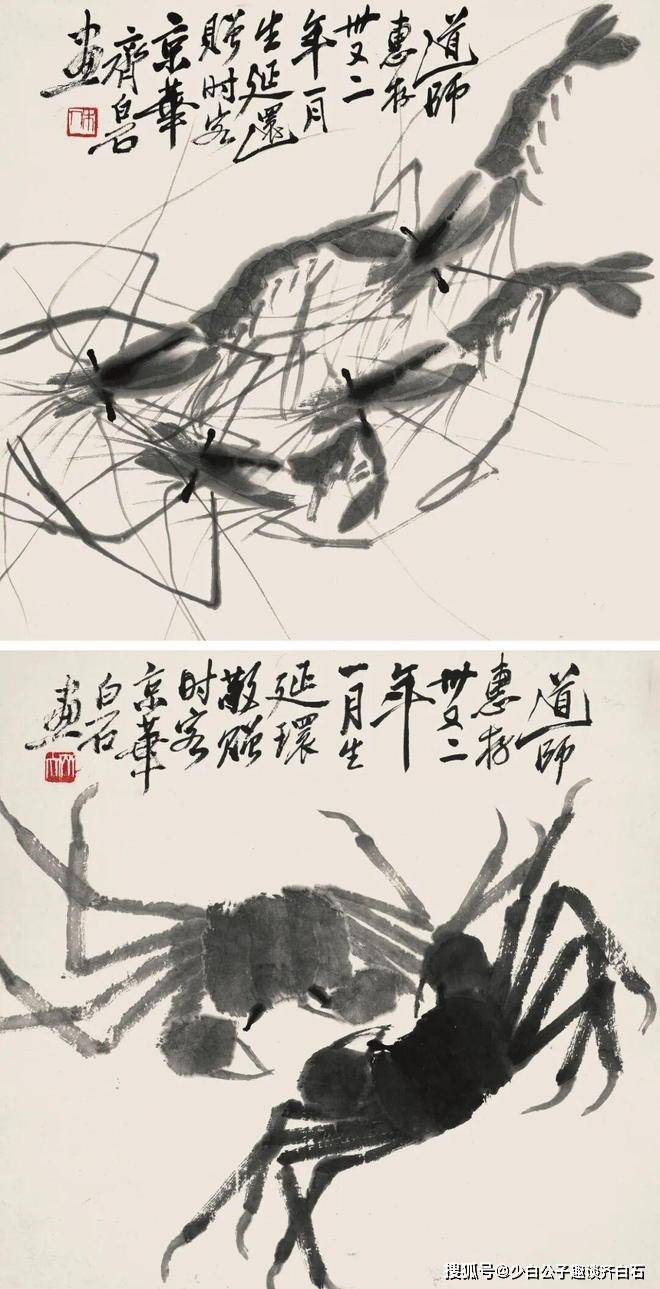 道師
惠存
卅又二
年一月
生延環
贈时客
京華
齊白石
畫
道師
惠存
卅又二
年
一月生
延環
敬贈
时客
京華
白石
畫
搜狐号@少白公子趣谈齐白石